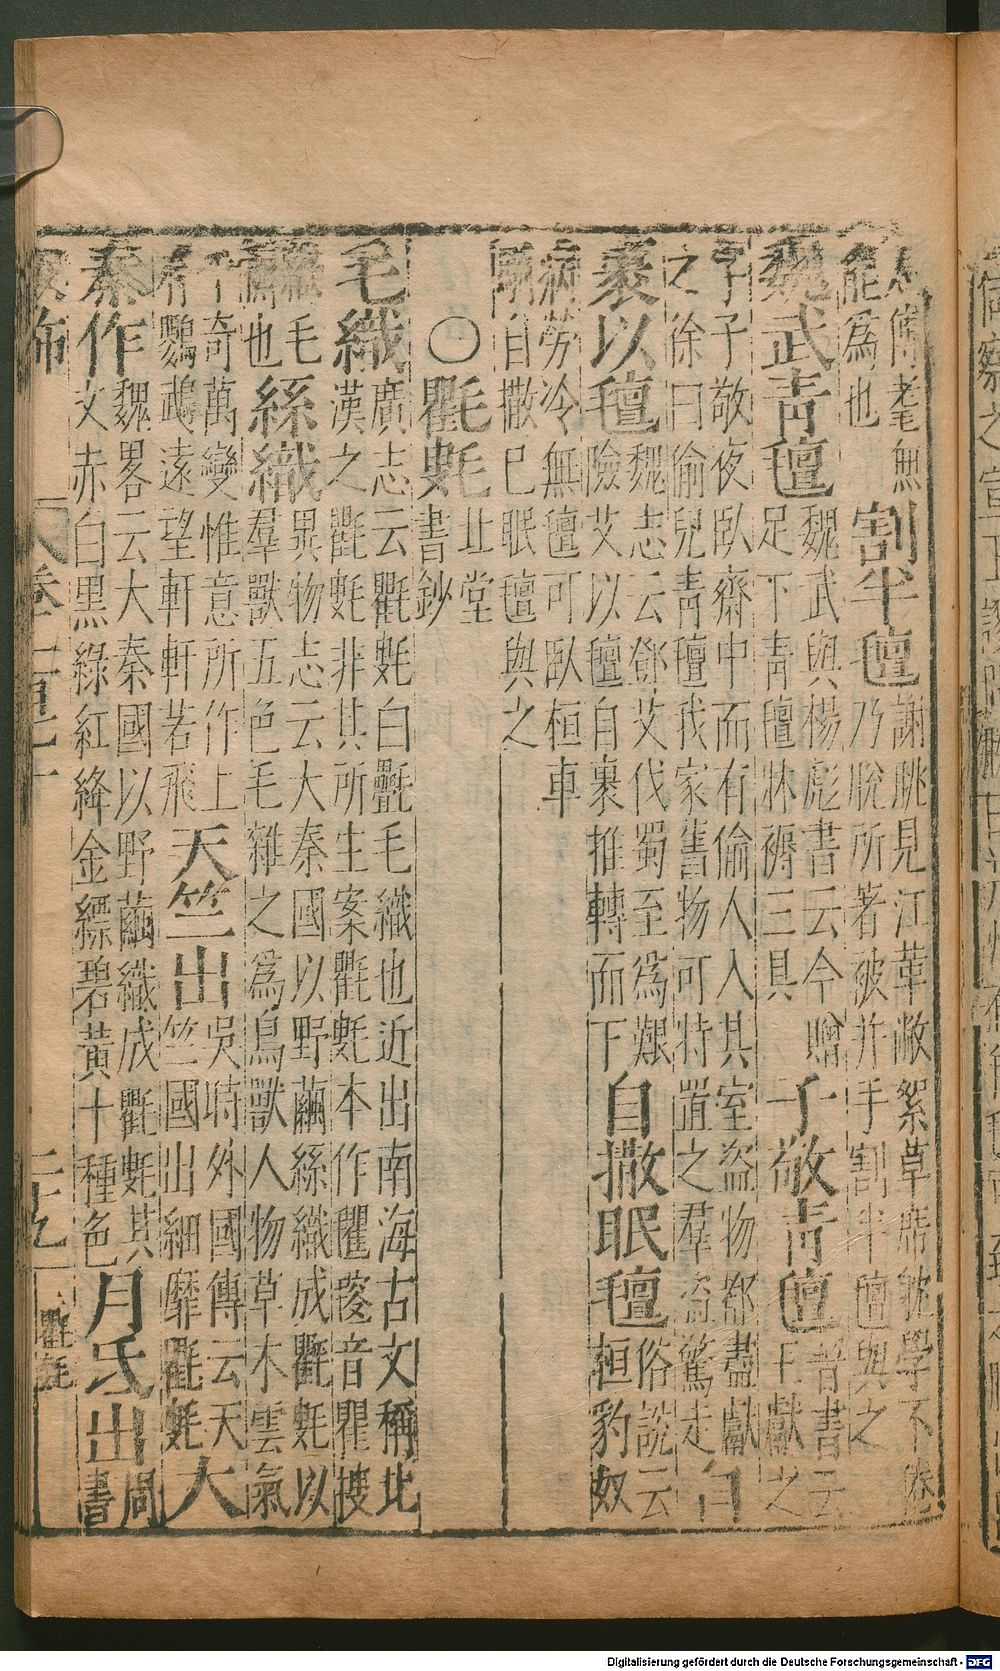 人備耄無
能爲也
割半氊
謝朓見江革敝絮草席躭學不倦
乃脫所著被并手割半氊與之
魏武靑氊
魏武與楊彪書云今贈
足下靑氊牀褥三具
子敬靑氊
晋書云
王獻之
字子敬夜臥齋中而有偷人入其室盜物都盡獻
之徐曰偷兒靑氊我家舊物可特置之羣盜驚走
自
裹以氊
魏志云鄧艾伐蜀至爲艱
險艾以氊自裹推轉而下
自撒眠氊
俗說云
桓豹奴
病勞冷無氊可臥桓車
自撒巳眠氊與之
〇氍毹
北堂
書鈔
毛織
廣志云氍毹白氎毛織也近出南海古文稱北
漢之氍毹非其所生案氍毹本作瞿㲣音瞿搜
織毛
也
絲織
異物志云大秦國以野繭絲織成氍毹以
羣獸五色毛雜之爲鳥獸人物草木雲氣
千奇萬變惟意所作上
有鸚鵡遠望軒軒若飛
天竺出
吳時外國傳云天
竺國出細靡氍毹
大
秦作
魏畧云大秦國以野繭織成氍毹其
文赤白黑綠紅絳金縹碧黃十種色
月氏出
周
書
服飾
卷一百七十
二十九
氍毹
Digitalisierung gefördert durch die Deutsche Forschungsgemeinschaft - DFG